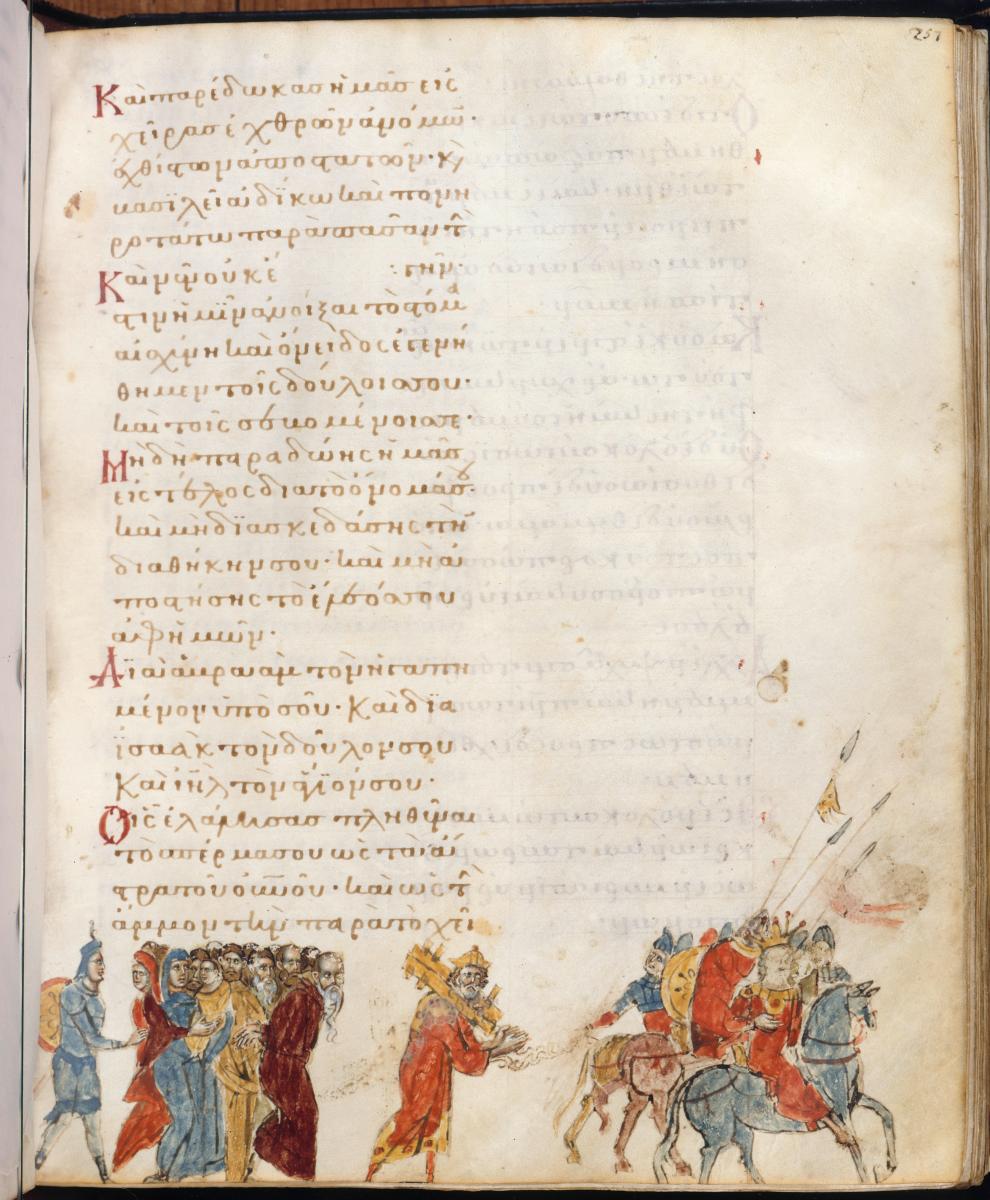 257
Καὶ παρέδωκας ἡμᾶς εἰς
χεῖρας ἐχθρῶν ἀνόμων·
ἐχθίστων ἀποστατῶν· κ(αὶ)
βασιλεῖ ἀδίκω καὶ πονη
ροτάτω παρὰ πᾶσαν τ(ὴν)
Καὶ νῦν οὐκ ἔ :γῆν·
στιν ἡμῖν ἀνοῖξαι τὸ στόμα
αἰσχύνη καὶ ὄνειδος ἐγενή
θημεν τοῖς δούλοις σου·
καὶ τοῖς σεβομένοις σε·
Μὴ δὴ παραδώης ἡμᾶς
εἰς τέλος διὰ τὸ ὄνομά σου·
καὶ μὴ διασκεδάσης τὴν
διαθήκην σου· καὶ μὴ ἀ
ποστήσης τὸ ἔλεός σου
ἀφ' ἡμῶν·
Διὰ ἁβραὰμ τὸν ἠγαπη
μένον ὑπὸ σοῦ· Καὶ διὰ
ἰσαὰκ τὸν δοῦλον σου
Καὶ ιηλ τὸν ἅγιόν σου·
Οἷς ἐλάλησας πληθῦναι
τὸ σπέρμα σου ὡς τὰ ἄ
στρα τοῦ οὐνοῦ· καὶ ὡς τ(ὴν)
ἄμμον τὴν παρὰ τὸ χεῖ